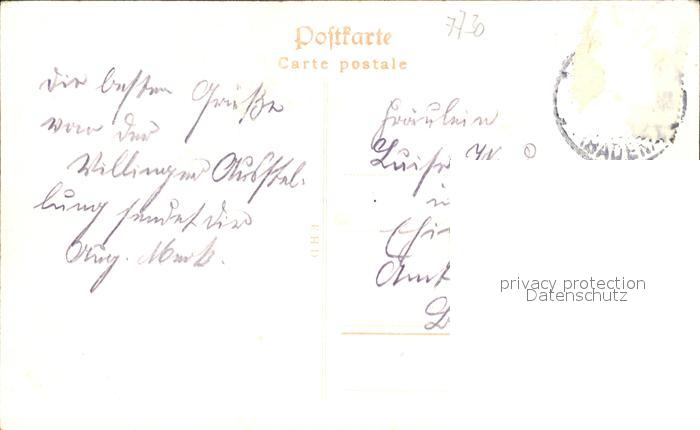 7730
Postkarte
Carte postale
Die besten Grüße
von der
Villinger Ausstel-
lung sendet Dir
Aug. Merk.
Fräulein
Luise W.
in
Amt
(BADEN)
privacy protection
Datenschutz